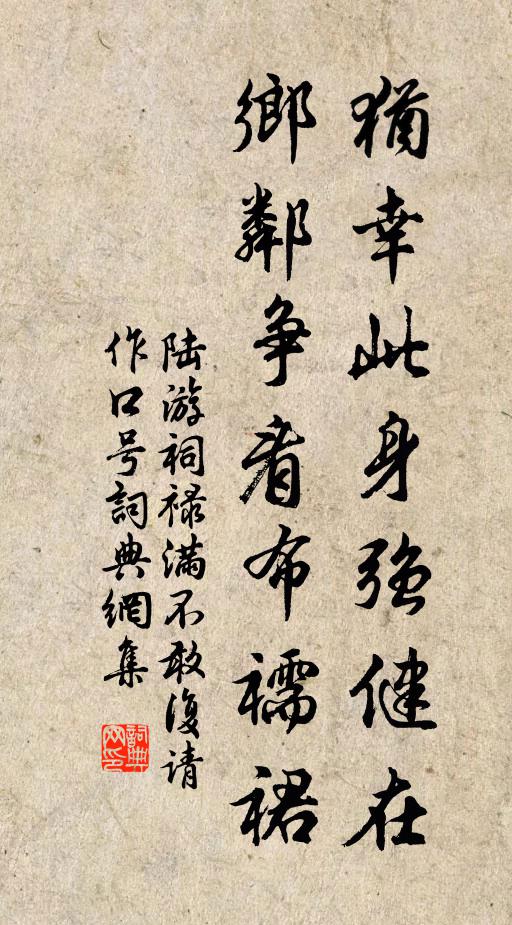 猶幸此身強健在
鄉鄰争看布襦裙
陆游祠禄满不敢復请
作口号詞典網集
詞典
网印